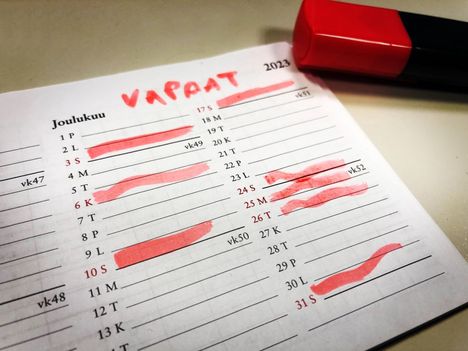 vk47
vk48
VAPAAT
Joulukuu
2023
1 P
2 L
3 S vk49
4 M
5 T
6 K
7 T
8 P
9 L
10 S vk50
11 M
12 T
13 K
17 S vk51
18 M
19 T
20 K
21 T
22 P
23 L
24 S vk52
25 M
26 T
27 K
28 T
29 P
30 L
31 S